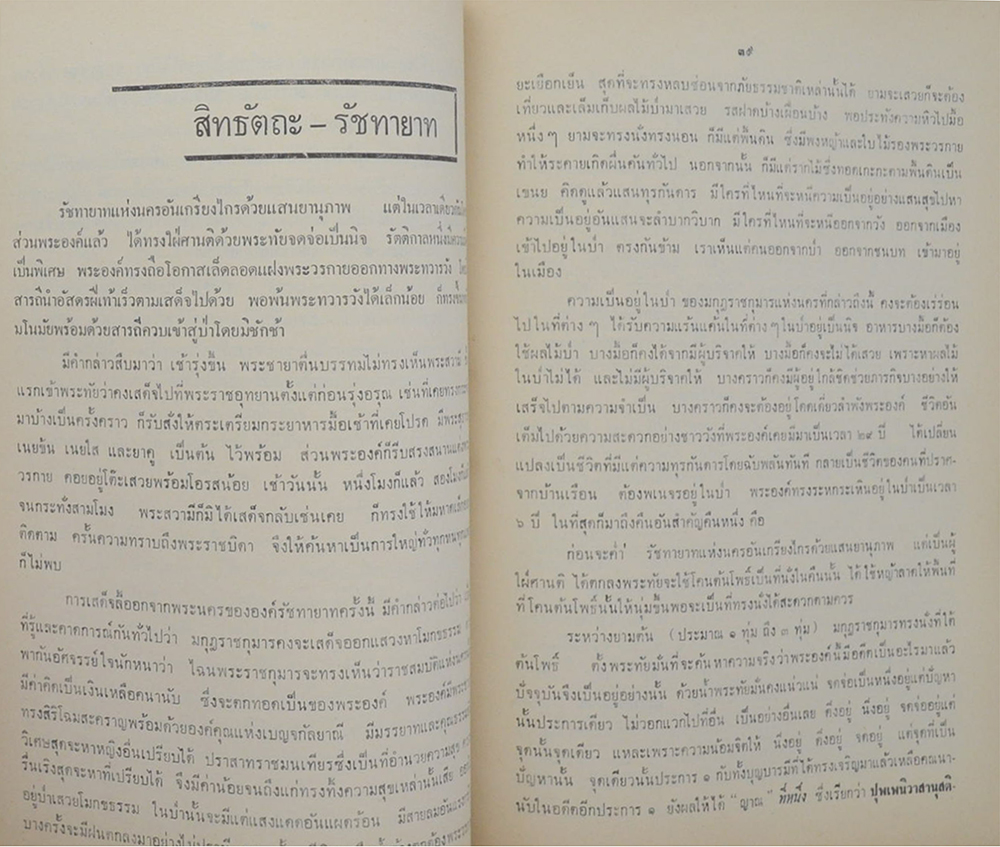 สิทธัตถะ – รัชทายาท
รัชทายาทแห่งนครอันเกรียงไกรด้วยแสนยานุภาพ แต่ในเวลาเดียวกัน
ส่วนพระองค์แล้ว ได้ทรงใฝ่ศานติด้วยพระทัยจดจ่อเป็นนิจ รัตติกาลหนึ่ง
เป็นพิเศษ พระองค์ทรงถือโอกาสเล็ดลอดแฝงพระวรกายออกทางพระทวารวัง
สารถีนำอัสดรฝีเท้าเร็วตามเสด็จไปด้วย พอพ้นพระทวารวังได้เล็กน้อย ก็ทรงขึ้น
มโนมัยพร้อมด้วยสารถีควบเข้าสู่ป่าโดยมิชักช้า
มีคำกล่าวสืบมาว่า เช้ารุ่งขึ้น พระชายาตื่นบรรทมไม่ทรงเห็นพระสวามี
แรกเข้าพระทัยว่าคงเสด็จไปที่พระราชอุทยานตั้งแต่ก่อนรุ่งอรุณ เช่นที่เคยทรง
มาบ้างเป็นครั้งคราว ก็รับสั่งให้ตระเตรียมกระยาหารมื้อเช้าที่เคยโปรด มีพระ
เนยข้น เนยใส และยาคู เป็นต้น ไว้พร้อม ส่วนพระองค์ก็รีบสรงสนานแต่ง
วรกาย คอยอยู่โต๊ะเสวยพร้อมโอรสน้อย เช้าวันนั้น หนึ่งโมงก็แล้ว สองโมงก็
จนกระทั่งสามโมง พระสวามีก็มิได้เสด็จกลับเช่นเคย ก็ทรงใช้ให้มหาดเล็ก
ติดตาม ครั้นความทราบถึงพระราชบิดา จึงให้ค้นหาเป็นการใหญ่ทั่วทุกหน
ก็ไม่พบ
การเสด็จลี้ออกจากพระนครขององค์รัชทายาทครั้งนี้ มีคำกล่าวต่อไปว่า
ที่รู้และคาดการณ์กันทั่วไปว่า มกุฎราชกุมารคงจะเสด็จออกแสวงหาโมกขธรรม
พากันอัศจรรย์ใจนักหนาว่า ไฉนพระราชกุมารจะทรงเห็นว่าราชสมบัติแห่งนคร
มีค่าคิดเป็นเงินเหลือคนานับ ซึ่งจะตกทอดเป็นของพระองค์ พระองค์มีพระ
ทรงสิริโฉมสะคราญพร้อมด้วยองค์คุณแห่งเบญจกัลยาณี มีมรรยาทและคุณธรรม
วิเศษสุดจะหาหญิงอื่นเปรียบได้ ปราสาทราชมนเทียรซึ่งเป็นที่อำนวยความสุข
รื่นเริงสุดจะหาที่เปรียบได้ จึงมีค่าน้อยจนถึงแก่ทรงทิ้งความสุขเหล่านั้นเสีย
อยู่ป่าเสวงโมกขธรรม ในป่านั้นจะมีแต่แสงแดดอันแผดร้อน มีสายลมอันแรง
บางครั้งจะมีฝนตกลงมาอย่าง
๓๕
ยะเยือกเย็น สุดที่จะทรงหลบซ่อนจากภัยธรรมชาติเหล่านั้นได้ ยามจะเสวยก็จะต้อง
เที่ยวและเล็มเก็บผลไม้ป่ามาเสวย รสฝาดบ้างเฝื่อนบ้าง พอประทังความหิวไปมื้อ
หนึ่ง ๆ ยามจะทรงนั่งทรงนอน ก็มีแต่พื้นดิน ซึ่งมีพงหญ้าและใบไม้รองพระวรกาย
ทำให้ระคายเกิดผื่นคันทั่วไป นอกจากนั้น ก็มีแต่รากไม้ซึ่งทอดเกะกะตามพื้นดินเป็น
เขนย คิดดูแล้วแสนทุรกันดาร มีใครที่ไหนที่จะหนีความเป็นอยู่อย่างแสนสุขไปหา
ความเป็นอยู่อันแสนจะลำบากวิบาก มีใครที่ไหนที่จะหนีออกจากวัง ออกจากเมือง
เข้าไปอยู่ในป่า ตรงกันข้าม เราเห็นแต่คนออกจากป่า ออกจากชนบท เข้ามาอยู่
ในเมือง
ความเป็นอยู่ในป่า ของมกุฎราชกุมารแห่งนครที่กล่าวถึงนี้ คงจะต้องเร่ร่อน
ไปในที่ต่าง ๆ ได้รับความแร้นแค้นในที่ต่าง ๆ ในป่าอยู่เป็นนิจ อาหารบางมื้อก็ต้อง
ใช้ผลไม้ป่า บางมื้อก็คงได้จากมีผู้บริจาคให้ บางมื้อก็คงจะไม่ได้เสวย เพราะหาผลไม้
ในป่าไม่ได้ และไม่มีผู้บริจาคให้ บางคราวก็คงมีผู้อยู่ใกล้ชิดช่วยภารกิจบางอย่างให้
เสร็จไปตามความจำเป็น บางคราวก็คงจะต้องอยู่โดดเดี่ยวลำพังพระองค์ ชีวิตอัน
เต็มไปด้วยความสะดวกอย่างชาววังที่พระองค์เคยมีมาเป็นเวลา ๒๙ ปี ได้เปลี่ยน
แปลงเป็นชีวิตที่มีแต่ความทุรกันดารโดยฉับพลันทันที กลายเป็นชีวิตของคนที่ปราศ-
จากบ้านเรือน ต้องพเนจรอยู่ในป่า พระองค์ทรงระหกระเหินอยู่ในป่าเป็นเวลา
๖ ปี ในที่สุดก็มาถึงคืนอันสำคัญคืนหนึ่ง คือ
ก่อนจะค่ำ รัชทายาทแห่งนครอันเกรียงไกรด้วยแสนยานุภาพ แต่เป็นผู้
ใฝ่ศานติ ได้ตกลงพระทัยจะใช้โคนต้นโพธิ์เป็นที่นั่งในคืนนั้น ได้ใช้หญ้าลาดให้พื้นที่
ที่โคนต้นโพธิ์นั้นให้นุ่มขึ้นพอจะเป็นที่ทรงนั่งได้สะดวกตามควร
ระหว่างยามต้น (ประมาณ ๑ ทุ่ม ถึง ๓ ทุ่ม) มกุฎราชกุมารทรงนั่งที่ใต้
ต้นโพธิ์ ตั้งพระทัยมั่นที่จะค้นหาความจริงว่าพระองค์นี้มีอดีตเป็นอะไรมาแล้ว
ปัจจุบันจึงเป็นอยู่อย่างนั้น ด้วยน้ำพระทัยมั่นคงแน่วแน่ จดจ่อเป็นหนึ่งอยู่แต่ปัญหา
นั้นประการเดียว ไม่วอกแวกไปที่อื่น เป็นอย่างอื่นเลย ดึงอยู่ นิ่งอยู่ จดจ่ออยู่แต่
จุดนั้นจุดเดียว และเพราะความน้อมจิตให้ นิ่งอยู่ ดึงอยู่ จดอยู่ แต่จุดที่เป็น
ปัญหานั้น จุดเดียวนั้นประการ ๑ กับทั้งบุญบารมีที่ได้ทรงเจริญมาแล้วเหลือคณนา-
นับในอดีตอีกประการ ๑ ยังผลให้ได้ "ญาณ" ที่หนึ่ง ซึ่งเรียกว่า ปุพเพนิวาสานุสติ-